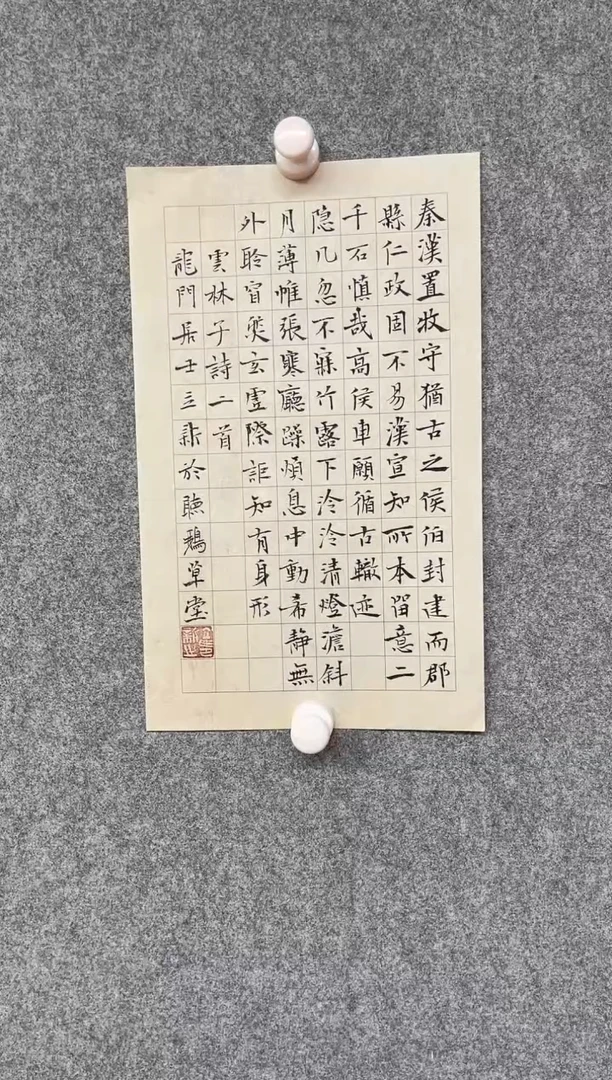 秦漢置牧守猶古之侯伯封建而郡
縣仁政固不易漢宣知所本留意二
千石慎哉高侯車願循古轍迹
隐几忽不寐竹露下泠泠清燈澹斜
月薄帷張寒廳躁煩息中動希靜無
外聆窅然玄虚際詎知有身形
雲林子詩二首
龍門居士立非於聽鵝草堂